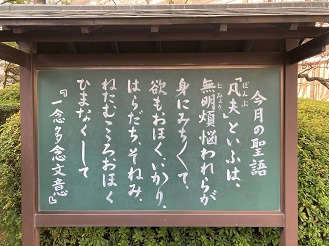 今月の聖語
「凡夫」といふは、
無明煩悩われらが
身にみちみちて、
欲もおほく、いかり、
はらだち、そねみ、
ねたむこころおほく
ひまなくして
『一念多念文意』